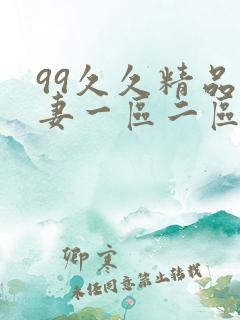 99久久精品
妻一區二區
卿寒
未经同意禁止转载